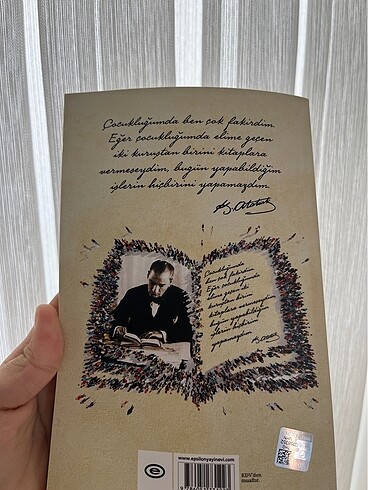 Çocukluğumda ben çok fakirdim.
Eğer çocukluğumda elime geçen
iki kuruştan birini kitaplara
vermeseydim, bugün yapabildiğim
işlerin hiçbirini yapamazdım.
K. Atatürk
Çocukluğumda
ben çok fakirdim.
Eğer çocukluğumda
elime geçen iki
kuruştan birini
kitaplara vermeseydim,
bugün yapabildiğim
işlerin hiçbirini
yapamazdım.
K. Atatürk
www.epsilonyayinevi.com
e
KDV'den
muaftır.